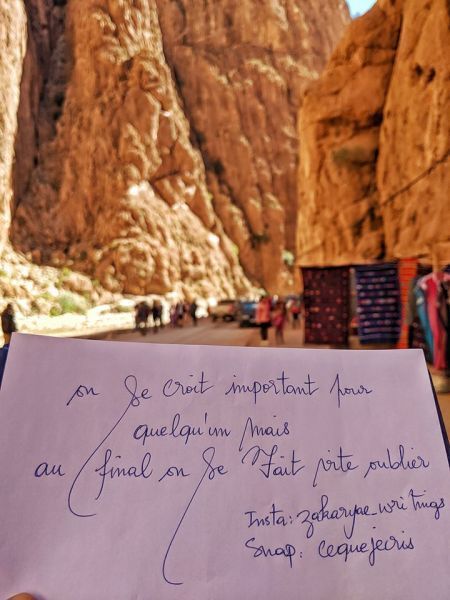 on se croit important pour
quelqu'un mais
au final on se fait vite oublier
Insta: zakaryae_writings
Snap: cequejecris